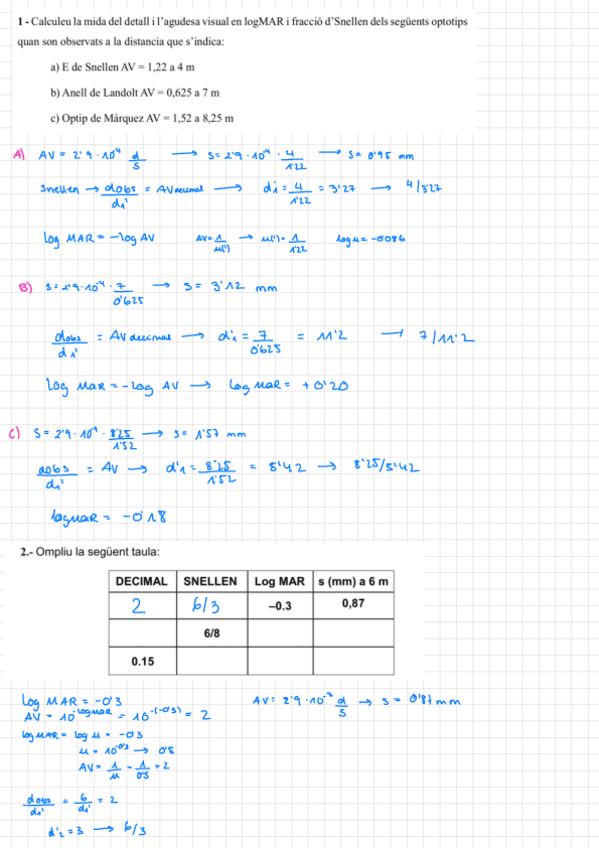 1 - Calculeu la mida del detall i l'agudesa visual en logMAR i fracció d'Snellen dels següents optotips
quan son observats a la distancia que s'indica:
a) E de Snellen AV = 1,22 a 4 m
b) Anell de Landolt AV = 0,625 a 7 m
c) Optip de Márquez AV = 1,52 a 8,25 m
A) AV = 2'9 · 10⁻⁴ d/s → s = 2'9 · 10⁻⁴ · 4/1'22 → s = 0'95 mm
Snellen → dobs/di' = AV decimal → di = 4/1'22 = 3'27 → 4/3'27
log MAR = -log AV AV = 1/u(') → u(') = 1/1'22 log u = -0'086
B) s = 2'9 · 10⁻⁴ · 7/0'625 → s = 3'12 mm
dobs/di' = AV decimal → d'i = 7/0'625 = 11'2 → 7/11'2
log MAR = -log AV → log MAR = +0'20
C) s = 2'9 · 10⁻⁴ · 8'25/1'52 → s = 1'57 mm
dobs/di' = AV → d'i = 8'25/1'52 = 5'42 → 8'25/5'42
log MAR = -0'18
2.- Ompliu la següent taula:
DECIMAL SNELLEN Log MAR s (mm) a 6 m
2 6/3 –0.3 0,87
6/8
0.15
log MAR = -0'3 AV = 2'9 · 10⁻³ d/s → s = 0'87 mm
AV = 10^-log MAR = 10^-(-0'3) = 2
log MAR = log u = -0'3
u = 10^-0'3 → 0'5
AV = 1/u = 1/0'5 = 2
dobs/di' = 6/di' = 2
d'i = 3 → 6/3